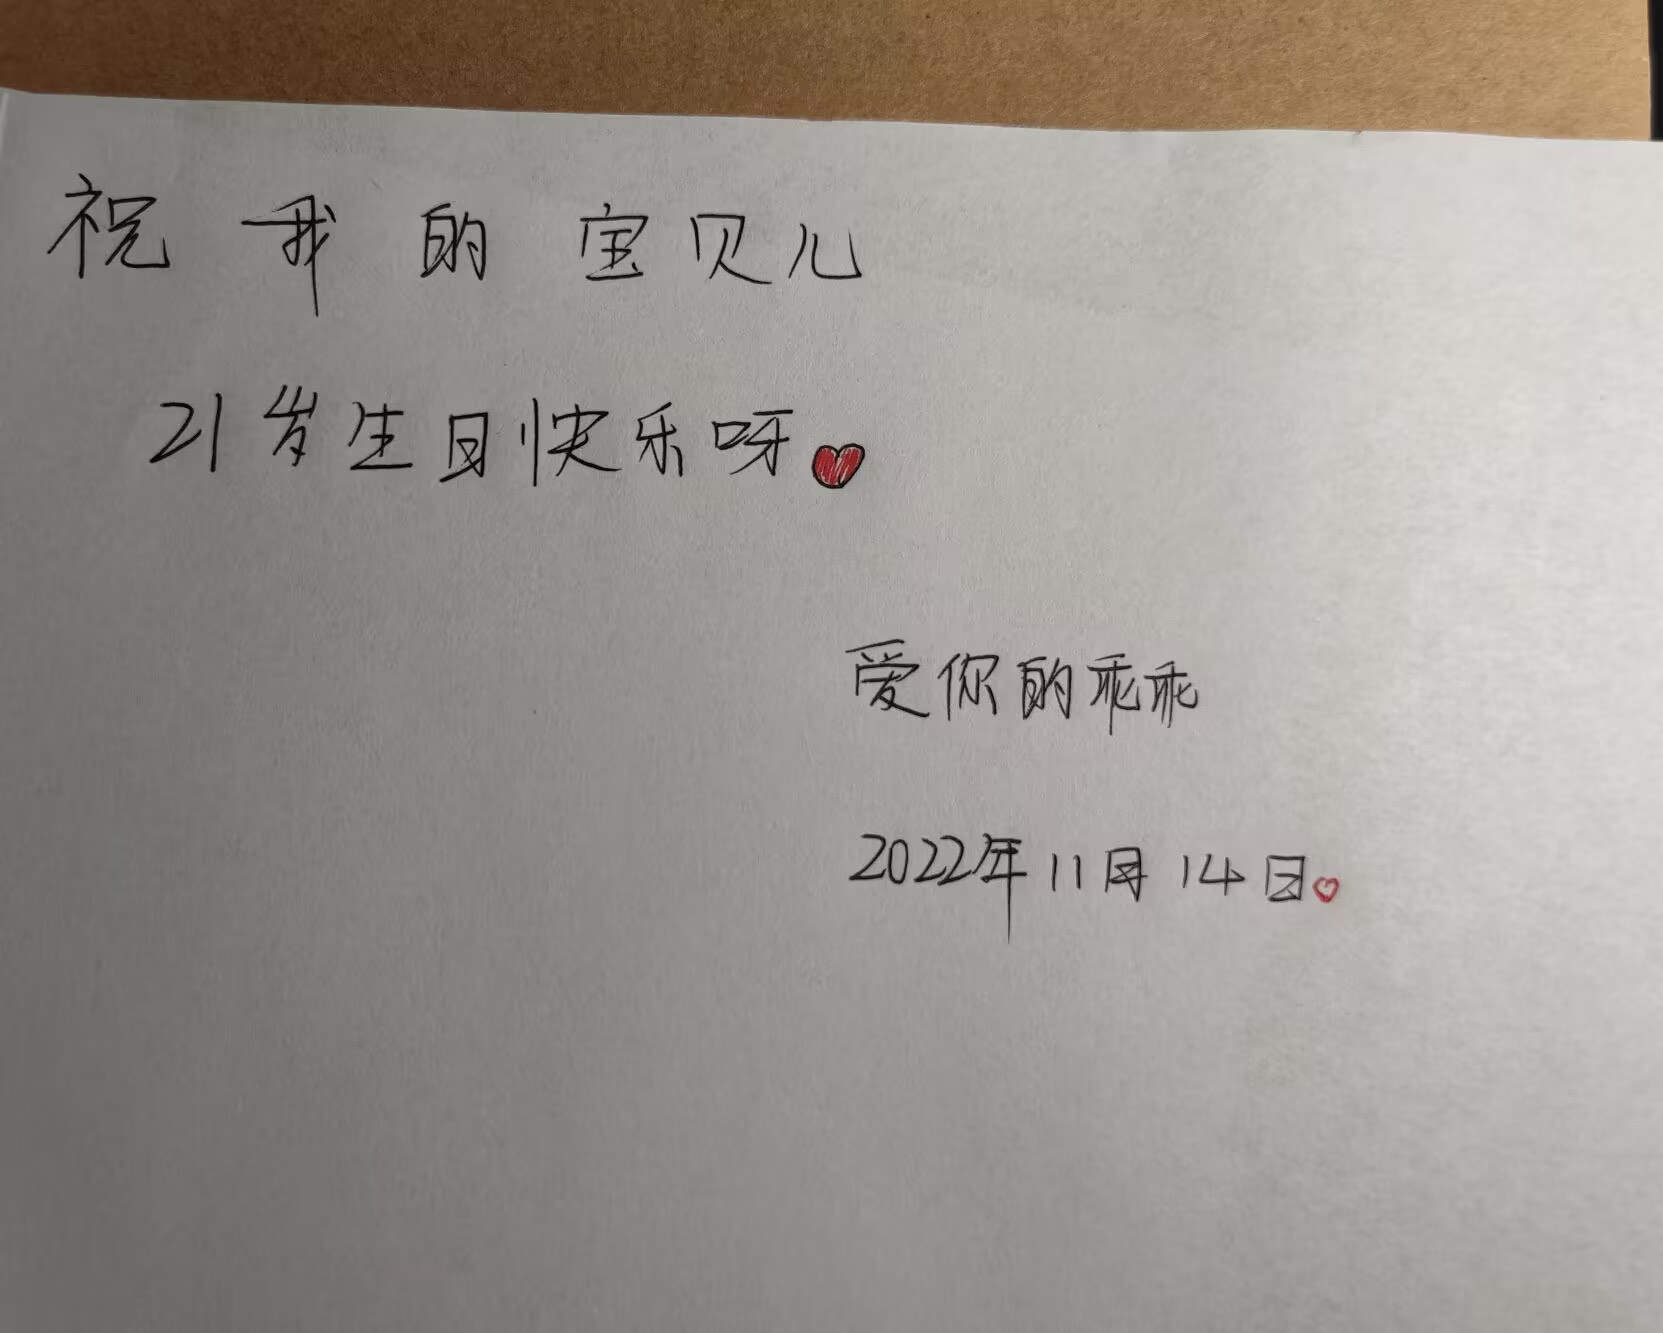 祝我的宝贝儿
21岁生日快乐呀
爱你的乖乖
2022年11月14日